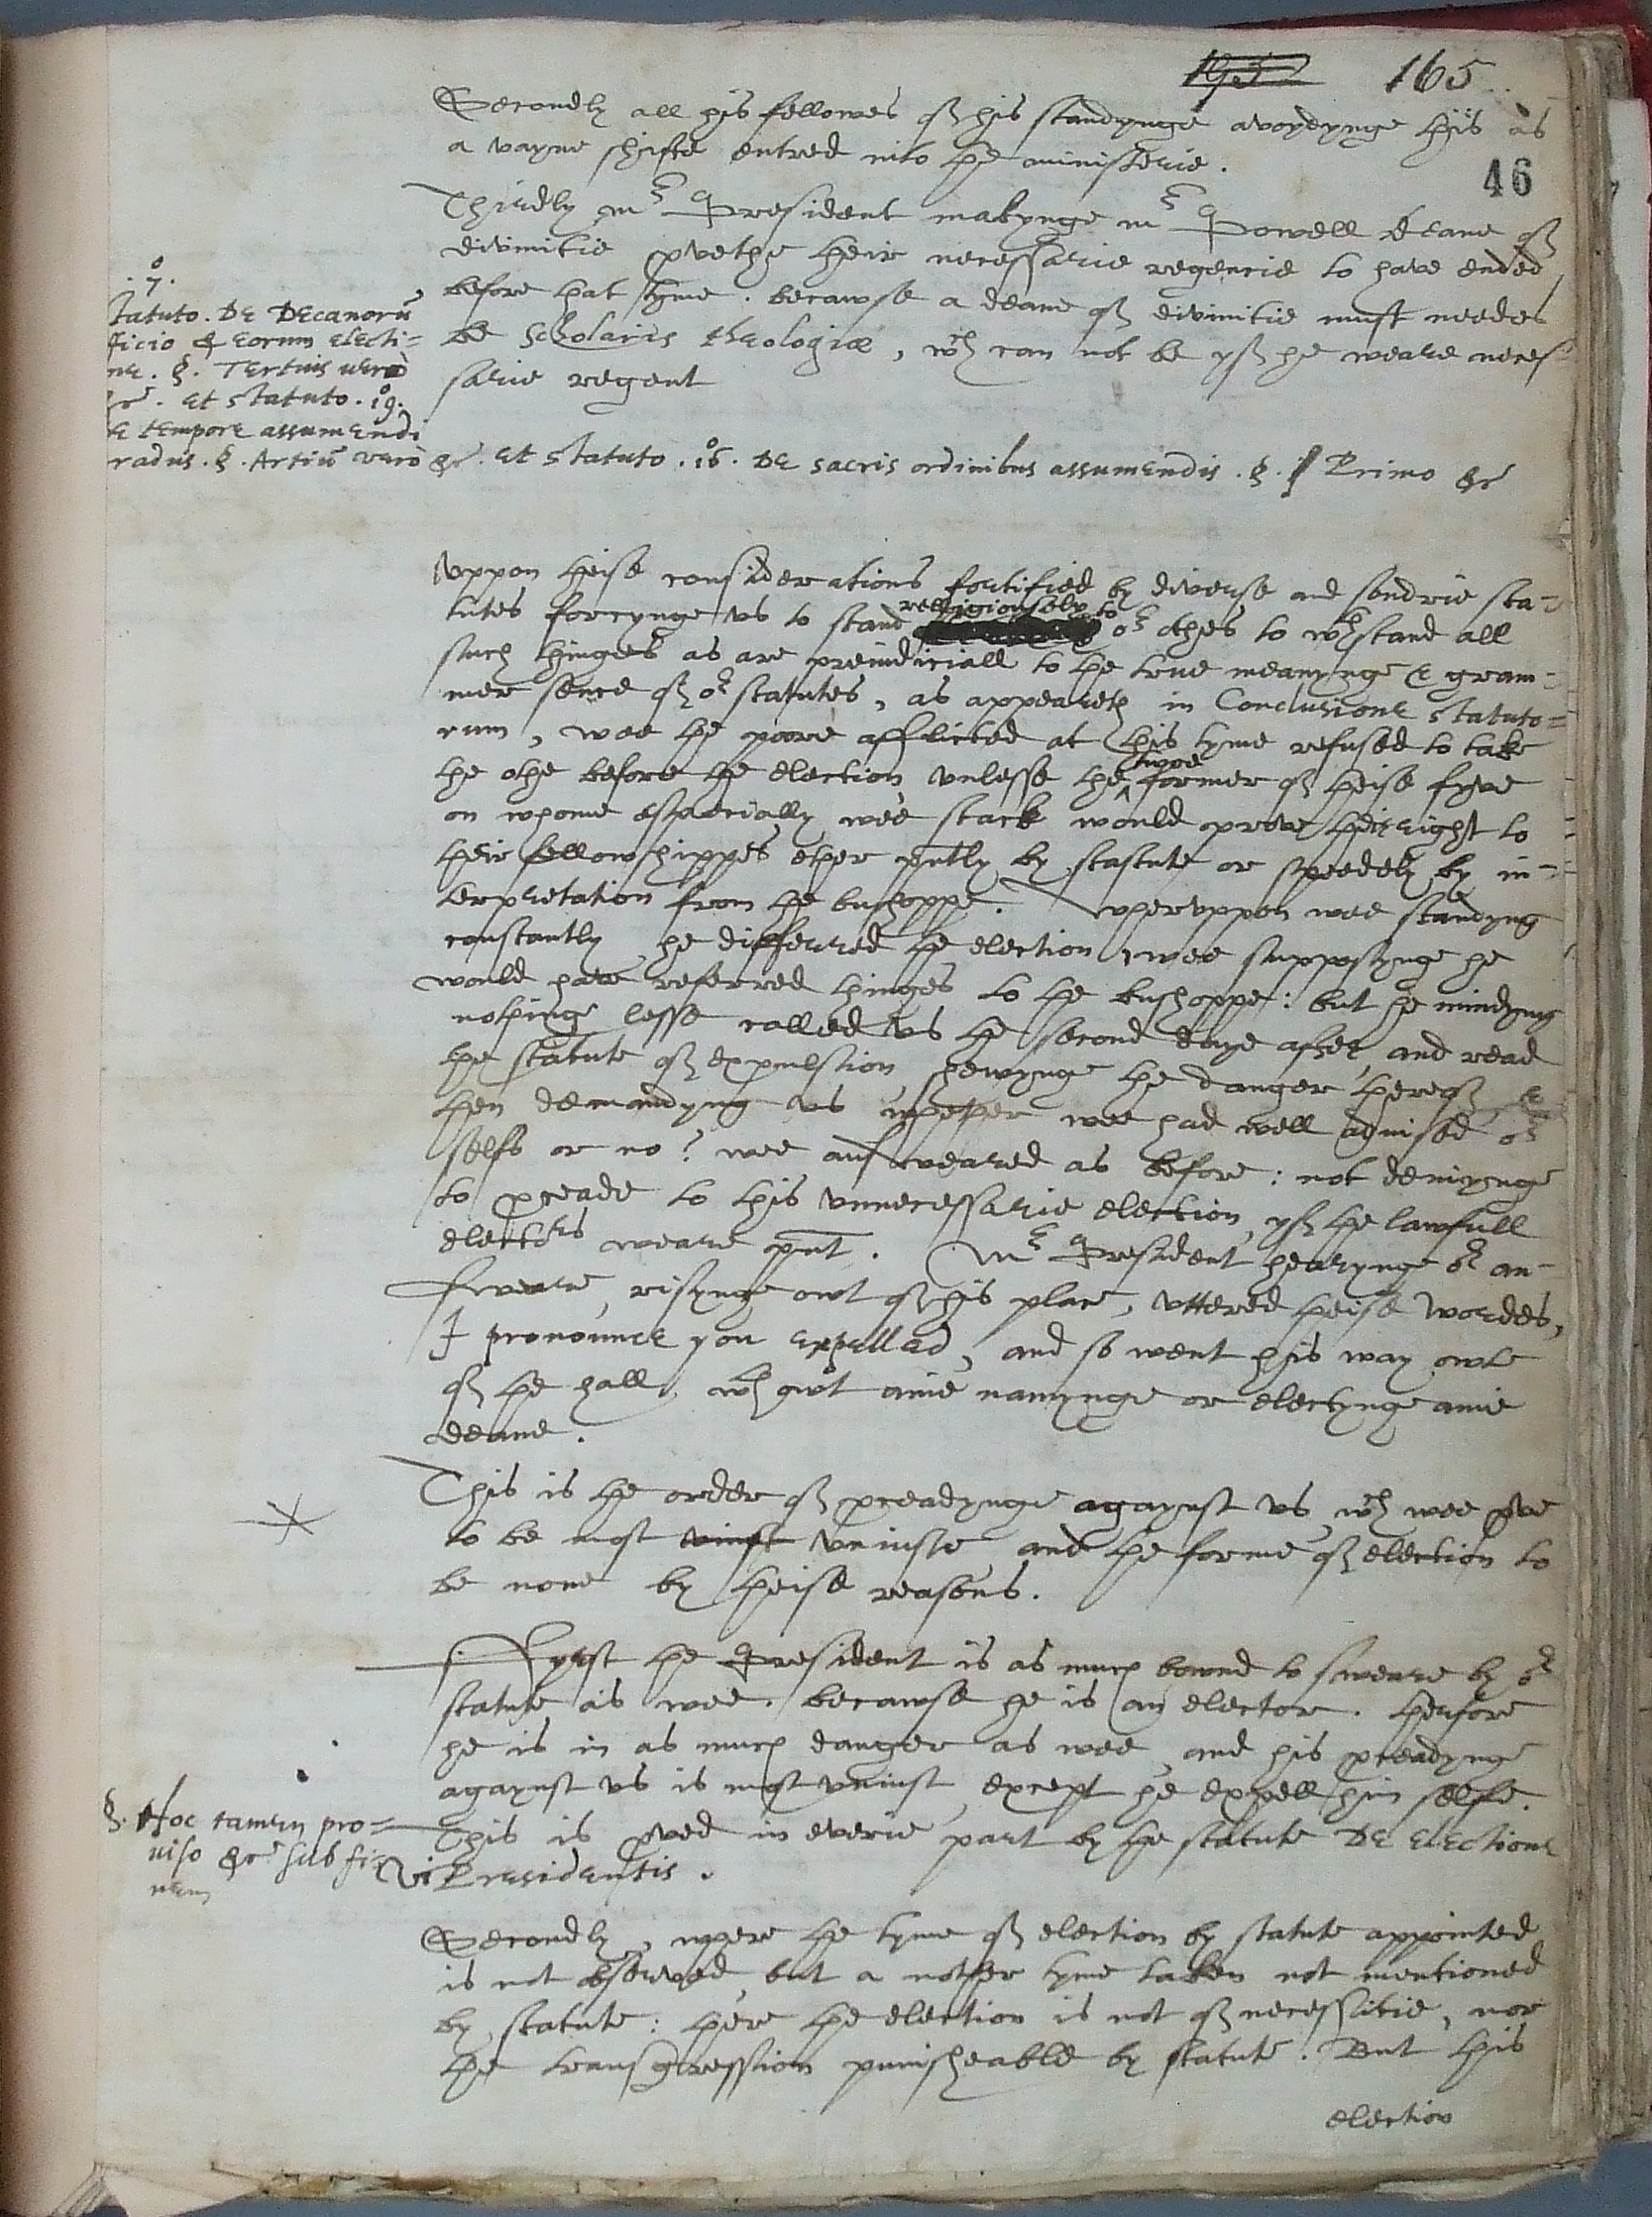 193 165
46
Secondly all his fellowes of his standynge avoydynge this as
a vayne shifte entred into the ministerie.
Thirdly mr President makynge mr Powell deane of
divinitie pvethe their necessarie regencie to have ended
before that tyme. becawse a deane of divinitie must needes
be Scholaris theologiæ, wch can not be yf he weare neces-
sarie regent
.7.
tatuto. De Decanorū
ficio & eorum electi=
ne. §. Tertius vero
&c. et statuto. 19.
e tempore assumendi
radus. §. Artiū vero &c. et statuto. 16. De sacris ordinibus assumendis. §. Primo &c
Uppon theise considerations fortified by diverse and sondrie sta-
tutes forcynge us to stand religiouselye to or othes to wthstand all
such thinges as are preiudiciall to the true meanynge & gram-
mer sence of or statutes, as appeareth in Conclusione statuto=
rum, wee the poore afflicted at this tyme refused to take
the othe before the election unlesse the twoe former of theise fyve
on whome especially wee stack would prove their right to
their fellowshippes ether pntly by statute or speedely by in-
terpretation from the bushoppe. Wheruppon wee standyng
constantly he differred the election, wee supposynge he
would have referred thinges to the bushoppe: but he mindyng
nothinge lesse called us the second daye after, and read
the statute of expulsion shewynge the danger therof &
then demandyng us whether wee had well advised or
selfs or no? wee answeared as before: not denyynge
to pceade to this unnecessarie election, yf the lawfull
electors weare pnt. Mr President hearynge or an-
sweare, risynge owt of his place, uttered theise wordes,
I pronounce you expelled, and so went his way owte
of the hall wthowt anie namynge or electynge anie
deane.
This is the order of pceadynge agaynst us wch wee pve
to be most uniust uniuste and the forme of election to
be none by theise reasons.
Fyrst the President is as much bownd to sweare by or
statute as wee. becawse he is an elector. therfore
he is in as much danger as wee, and his pceadynge
agaynst us is most uniust except he expell him selfe.
This is pved in everie part by the statute De electione
vi Presidentis.
§. Hoc tamen pro=
viso &c sub fi
nem
Secondly, where the tyme of election by statute appointed
is not observed, but a nother tyme taken not mentioned
by statute: there the election is not of necessitie, nor
the transgression punisheable by statute. But this
election